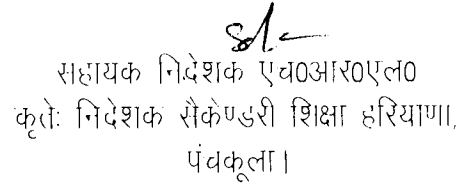 Sd/-
सहायक निदेशक एच०आर०एल०
कृतेः निदेशक सैकेण्डरी शिक्षा हरियाणा,
पंचकूला।